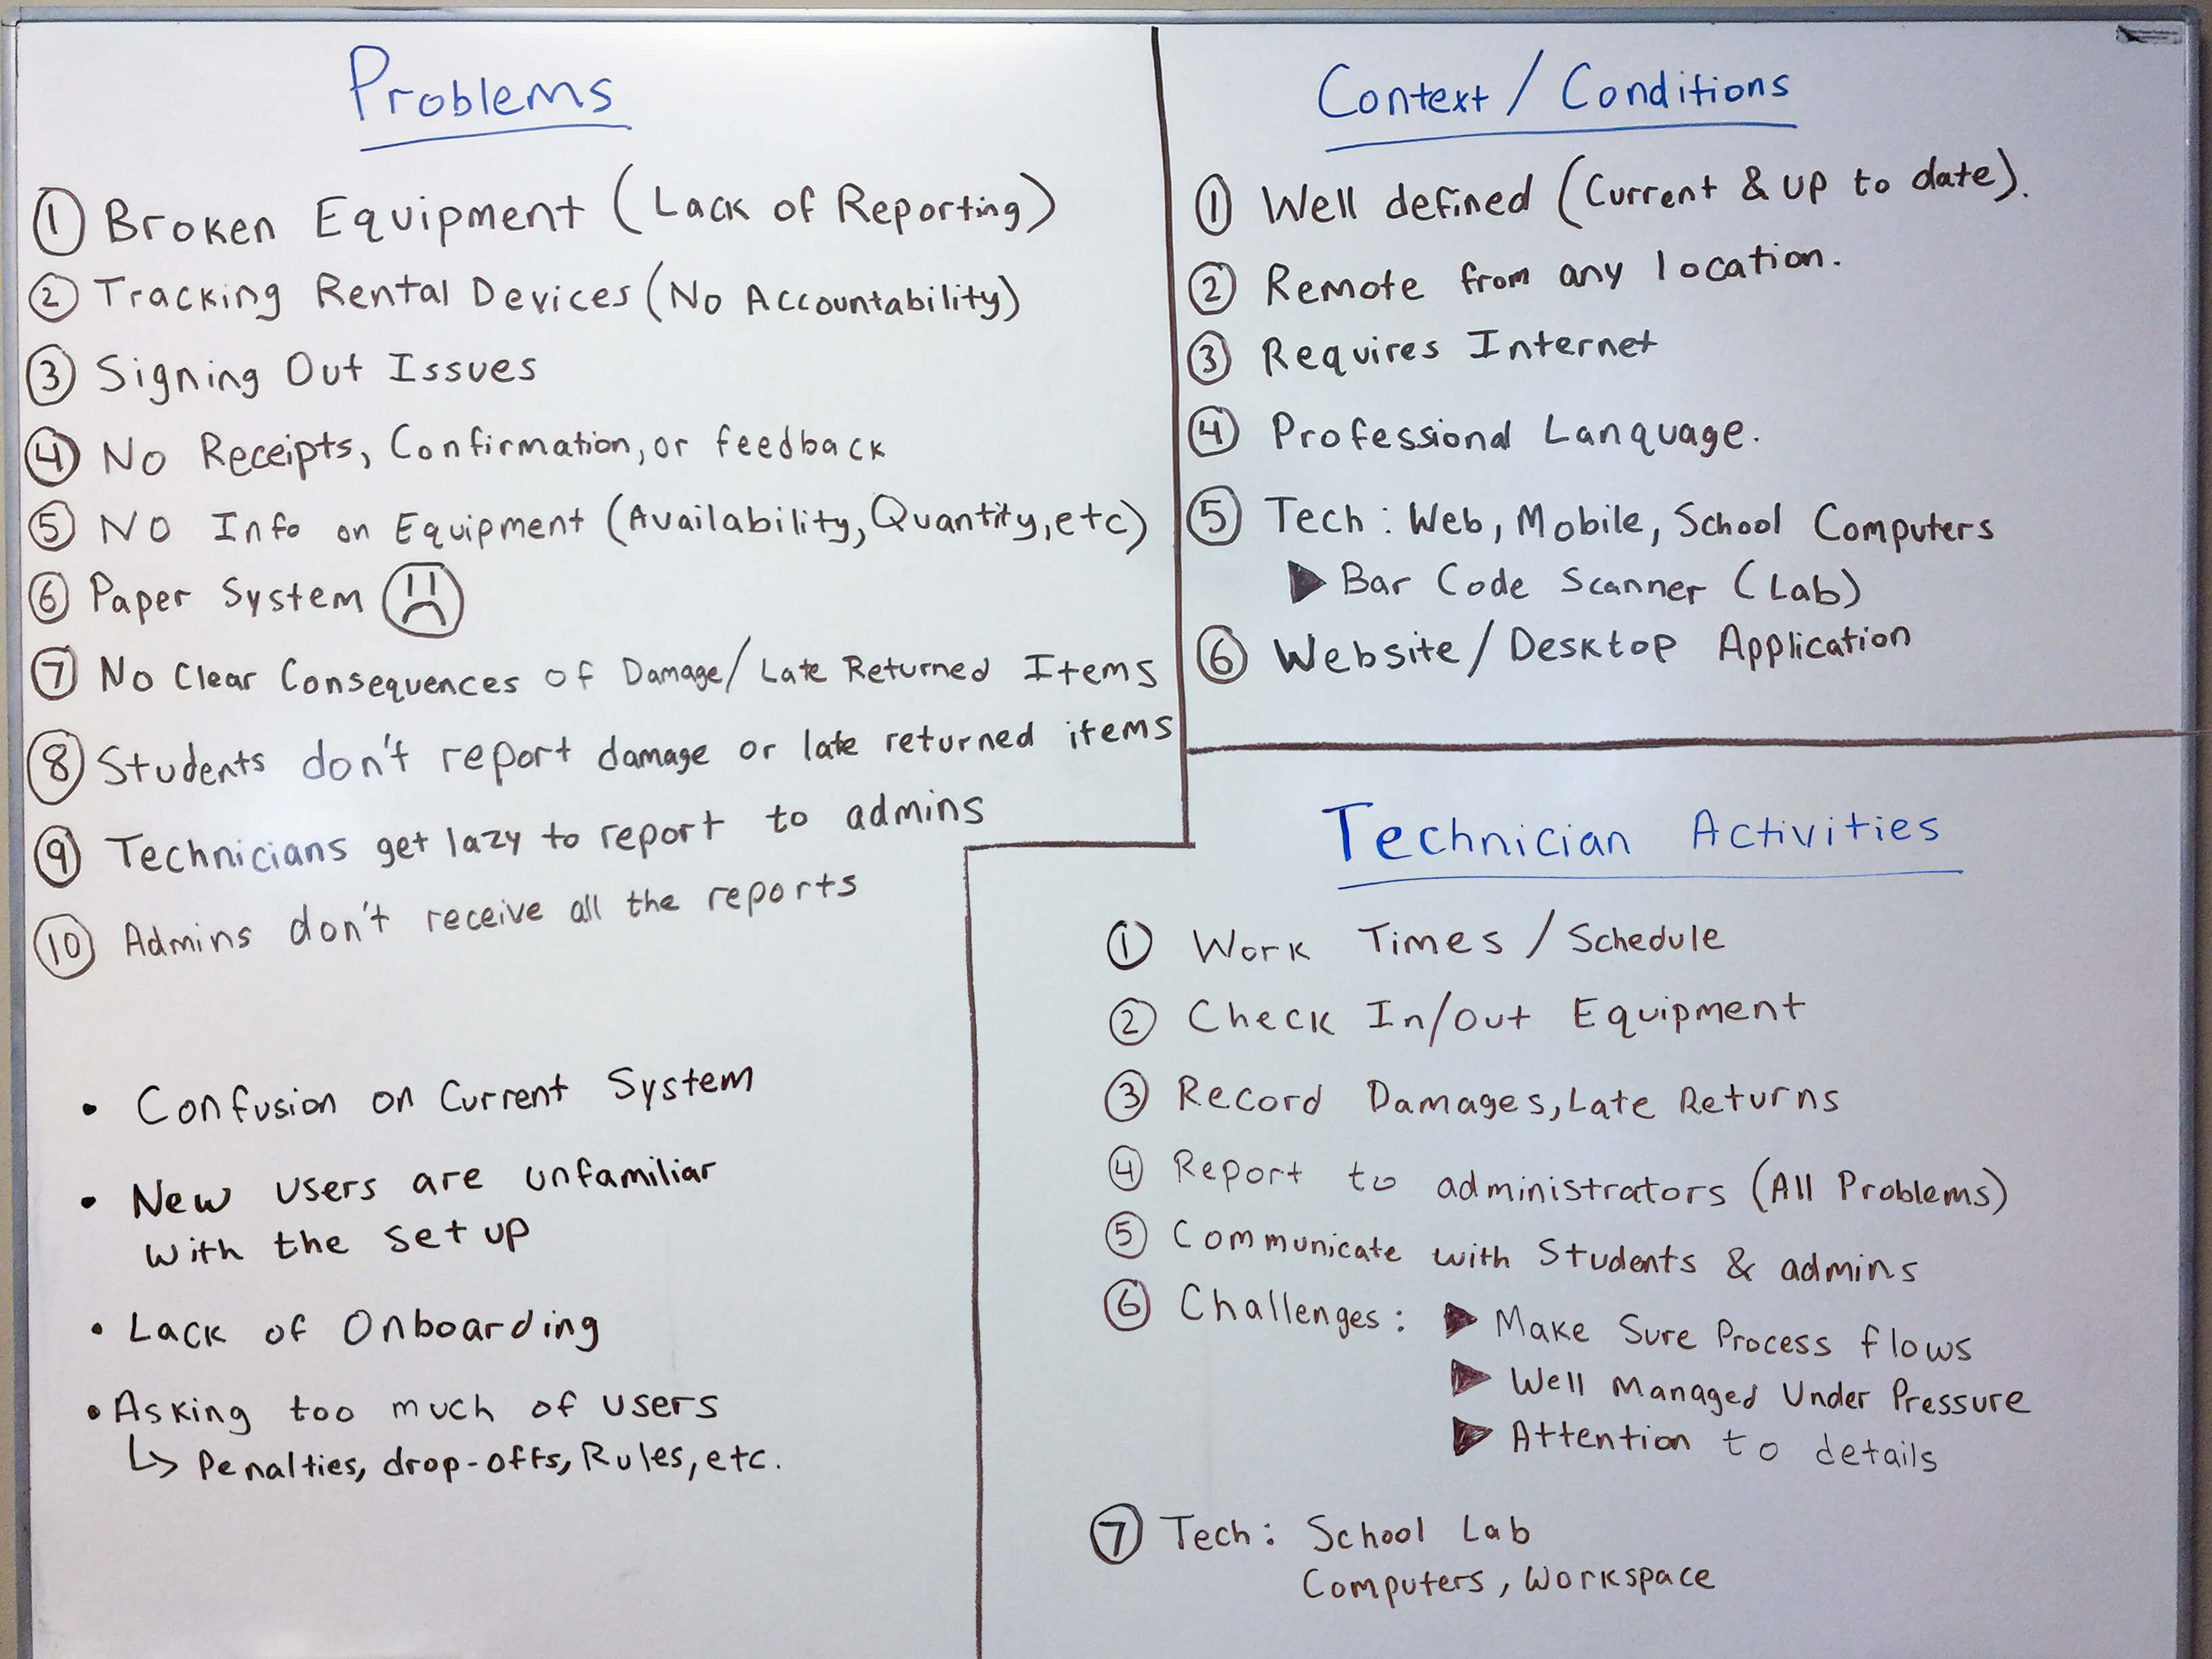 Problems
① Broken Equipment (Lack of Reporting)
② Tracking Rental Devices (No Accountability)
③ Signing Out Issues
④ No Receipts, Confirmation, or feedback
⑤ No Info on Equipment (Availability, Quantity, etc)
⑥ Paper System
⑦ No Clear Consequences of Damage/Late Returned Items
⑧ Students don't report damage or late returned items
⑨ Technicians get lazy to report to admins
⑩ Admins don't receive all the reports
• Confusion on Current System
• New users are unfamiliar
with the set up
• Lack of Onboarding
• Asking too much of users
↳ Penalties, drop-offs, Rules, etc.
Context / Conditions
① Well defined (Current & up to date).
② Remote from any location.
③ Requires Internet
④ Professional Language.
⑤ Tech: Web, Mobile, School Computers
▶ Bar Code Scanner (Lab)
⑥ Website/Desktop Application
Technician Activities
① Work Times / Schedule
② Check In/Out Equipment
③ Record Damages, Late Returns
④ Report to administrators (All Problems)
⑤ Communicate with Students & admins
⑥ Challenges: ▶ Make Sure Process flows
▶ Well Managed Under Pressure
▶ Attention to details
⑦ Tech: School Lab
Computers, Workspace